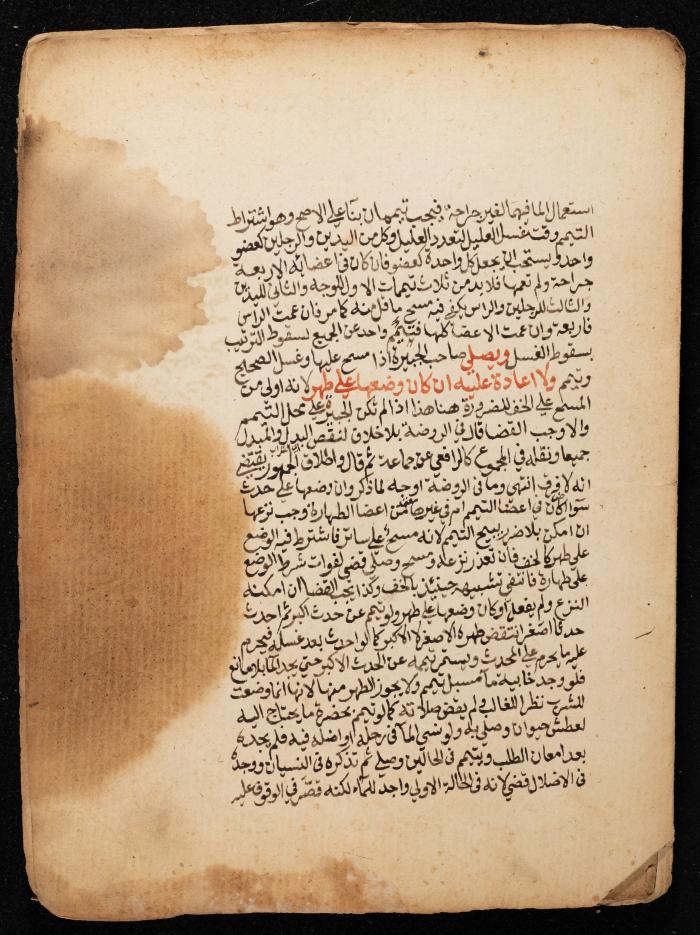 استعمال الما فيهما لغير جراحة فيجب تيممان بنا على الاصح وهو اشتراط
التيمم وقت غسل العليل لتعدد العليل وكل من اليدين والرجلين كعضو
واحد ويستحب ان يجعل كل واحدة كعضو فان كان في اعضايه الاربعة
جراحة ولم تعمها فلا بد من ثلاث تيممات الاول للوجه والثاني لليدين
والثالث للرجلين والراس يكفي فيه مسح ما قل منه كما مر فان عمت الراس
فاربعة وان عمت الاعضا كلها فتيمم واحد عن الجميع لسقوط الترتيب
بسقوط الغسل ويصلي صاحب الجبيرة اذا مسح عليها وغسل الصحيح
وتيمم ولا اعادة عليه ان كان وضعها على طهر لانه اولى من
المسح على الخف للضرورة هنا هذا اذا لم تكن الجبيرة على محل التيمم
والا وجب القضا قال في الروضة بلا خلاف لنقص البدل والمبدل
جميعا ونقله في المجموع كالرافعي عن جماعة ثم قال واطلاق الجمهور يقتضي
انه لا فرق انتهى وما في الروضة اوجه لما ذكر وان وضعها على حدث
سوا كان في اعضا التيمم ام في غيرها من اعضا الطهارة وجب نزعها
ان امكن بلا ضرر يبيح التيمم لانه مسح على ساتر فاشترط فيه الوضع
على طهر كالخف فان تعذر نزعه ومسح وصلى قضى لفوات شرط الوضع
على طهارة فانتفى تشبيهه حينئذ بالخف وكذا يجب القضا ان امكنه
النزع ولم يفعل او كان وضعها على طهر ولو تيمم عن حدث اكبر ثم احدث
حدثا اصغر انتقض طهره الاصغر لا الاكبر كما لو احدث بعد غسله فيحرم
عليه ما يحرم على المحدث ويستمر تيممه عن الحدث الاكبر حتى يجد الما بلا مانع
فلو وجد خابية ما مسبل تيمم ولا يجوز الطهر منها لانها انما وضعت
للشرب نظرا للغالب ولم يقض صلاته كما لو تيمم بحضرة ما يحتاج اليه
لعطش حيوان وصلى به ولو نسي الما في رحله او اضله فيه فلم يجده
بعد امعان الطلب وتيمم في الحالين وصلى ثم تذكره في النسيان ووجده
في الاضلال قضى لانه في الحالة الاولى واجد للماء لكنه قصر في الوقوف عليه